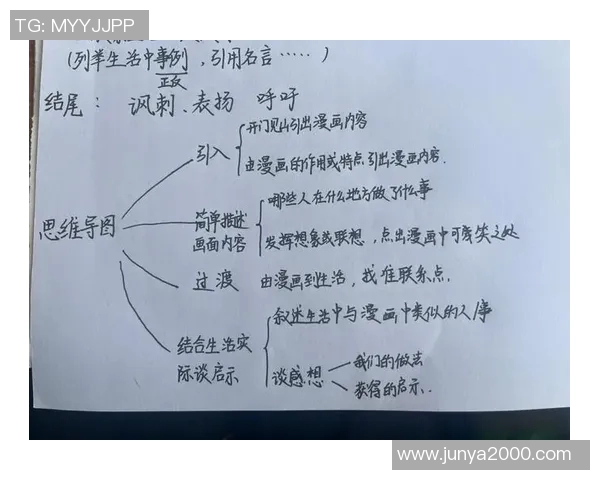 TG: MYYJJPP
(列举生活中事例，引用名言……)
正反
结尾： 讽刺、表扬 呼吁
思维导图
引入
开门见山引出漫画内容
由漫画的作用或特点引出漫画内容.
简单描述
画面内容
哪些人在什么地方做了什么事
发挥想象或联想，点出漫画中可笑之处
过渡 由漫画到生活，找准联系点.
结合生活实
际谈启示
叙述生活中与漫画中类似的人事
谈感想
我们的做法
获得的启示.
www.junya2000.com